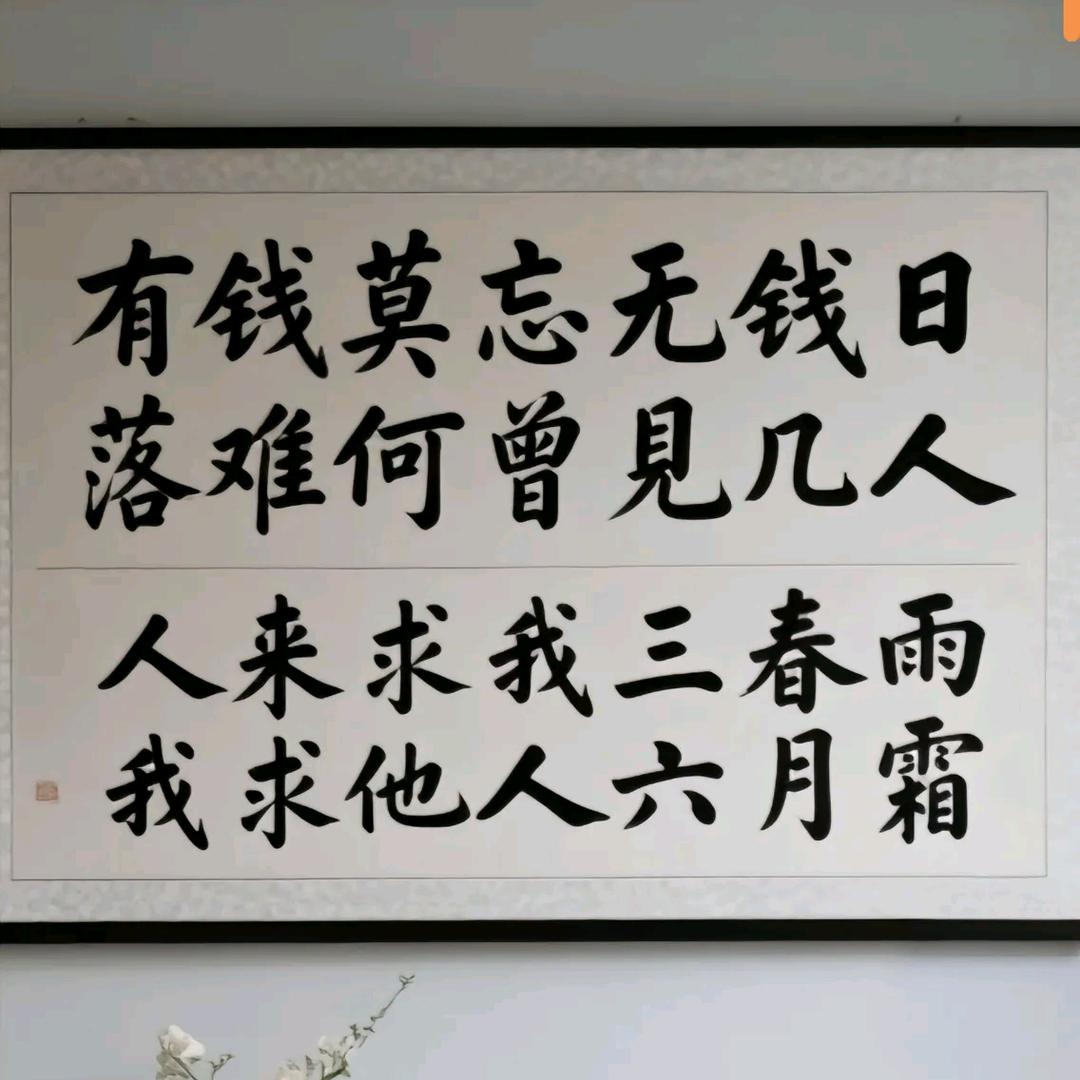 有钱莫忘无钱日
落难何曾見几人
人来求我三春雨
我求他人六月霜